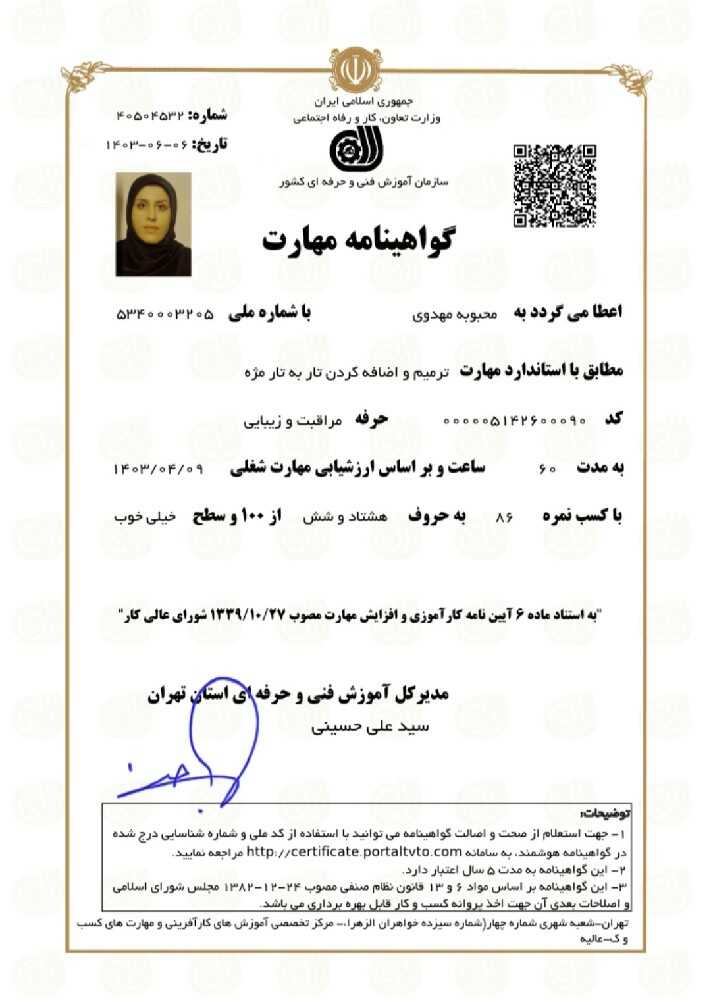 جمهوری اسلامی ایران
وزارت تعاون، کار و رفاه اجتماعی
سازمان آموزش فنی و حرفه ای کشور
شماره: ۴۰۵۰۴۵۳۲
تاریخ: ۱۴۰۳-۰۶-۰۶
گواهینامه مهارت
اعطا می گردد به محبوبه مهدوی با شماره ملی ۵۳۴۰۰۰۳۲۰۵
مطابق با استاندارد مهارت ترمیم و اضافه کردن تار به تار مژه
کد ۰۰۰۰۰۵۱۴۲۶۰۰۰۹۰ حرفه مراقبت و زیبایی
به مدت ۶۰ ساعت و بر اساس ارزشیابی مهارت شغلی ۱۴۰۳/۰۴/۰۹
با کسب نمره ۸۶ به حروف هشتاد و شش از ۱۰۰ و سطح خیلی خوب
"به استناد ماده ۶ آیین نامه کارآموزی و افزایش مهارت مصوب ۱۳۳۹/۱۰/۲۷ شورای عالی کار"
مدیرکل آموزش فنی و حرفه ای استان تهران
سید علی حسینی
توضیحات:
۱- جهت استعلام از صحت و اصالت گواهینامه می توانید با استفاده از کد ملی و شماره شناسایی درج شده
در گواهینامه هوشمند، به سامانه http://certificate.portaltvto.com مراجعه نمایید.
۲- این گواهینامه به مدت ۵ سال اعتبار دارد.
۳- این گواهینامه بر اساس مواد ۶ و ۱۳ قانون نظام صنفی مصوب ۲۴-۱۲-۱۳۸۲ مجلس شورای اسلامی
و اصلاحات بعدی آن جهت اخذ پروانه کسب و کار قابل بهره برداری می باشد.
تهران-شعبه شهری شماره چهار(شماره سیزده خواهران الزهرا)- مرکز تخصصی آموزش های کارآفرینی و مهارت های کسب
و ک-عالیه